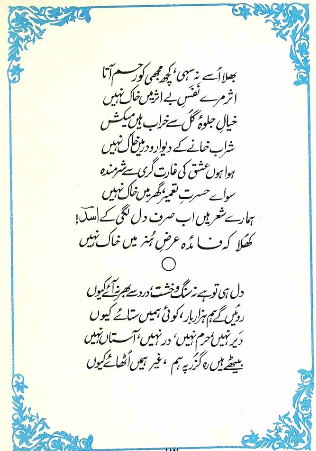 بھلا اُسے نہ سہی، کچھ مجھی کو رحم آتا
اثر مرے نفَسِ بے اثر میں خاک نہیں
خیالِ جلوۂ گُل سے خراب ہیں میکش
شراب خانے کے دیوار و در میں خاک نہیں
ہوا ہوں عشق کی غارت گری سے شرمندہ
سوائے حسرتِ تعمیر گھر میں خاک نہیں
ہمارے شعر ہیں اب صرف دل لگی کے اسدؔ!
کھُلا کہ فائدہ عرضِ ہُنر میں خاک نہیں
دل ہی تو ہے نہ سنگ و خشت، درد سے بھر نہ آئے کیوں
روئیں گے ہم ہزار بار، کوئی ہمیں ستائے کیوں
دَیر نہیں، حرم نہیں، در نہیں، آستاں نہیں
بیٹھے ہیں رہ گزر پہ ہم، غیر ہمیں اُٹھائے کیوں